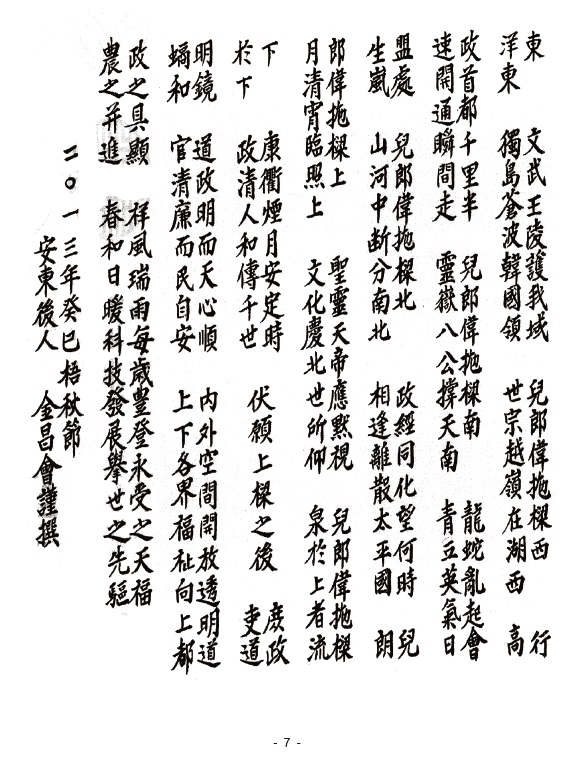 東 文武王陵護我域 兒郎偉抛樑西 行
洋東 獨島蒼波韓國領 世宗越嶺在湖西 高
政首都千里半 兒郎偉抛樑南 龍蛇亂起會
速開通瞬間走 靈嶽八公撐天南 青丘英氣日
盟處 兒郎偉抛樑北 政經同化望何時 兒
生嵐 山河中断分南北 相逢離散太平國 朗
郎偉抛樑上 聖靈天帝應黙視 兒郎偉抛樑
月清宵臨照上 文化慶北世所仰 泉於上者流
下 康衢煙月安定時 伏願上樑之後 庶政
於下 政清人和傳千世 吏道
明鏡 道政明而天心順 內外空間開放透明道
和 官清廉而民自安 上下各界福祉向上都
政之具顯 祥風瑞雨每歲豊登永受之天福
農之并進 春和日暖科技發展擧世之先驅
二〇一三年癸巳梧秋節
安東後人 金昌會謹撰
- 7 -